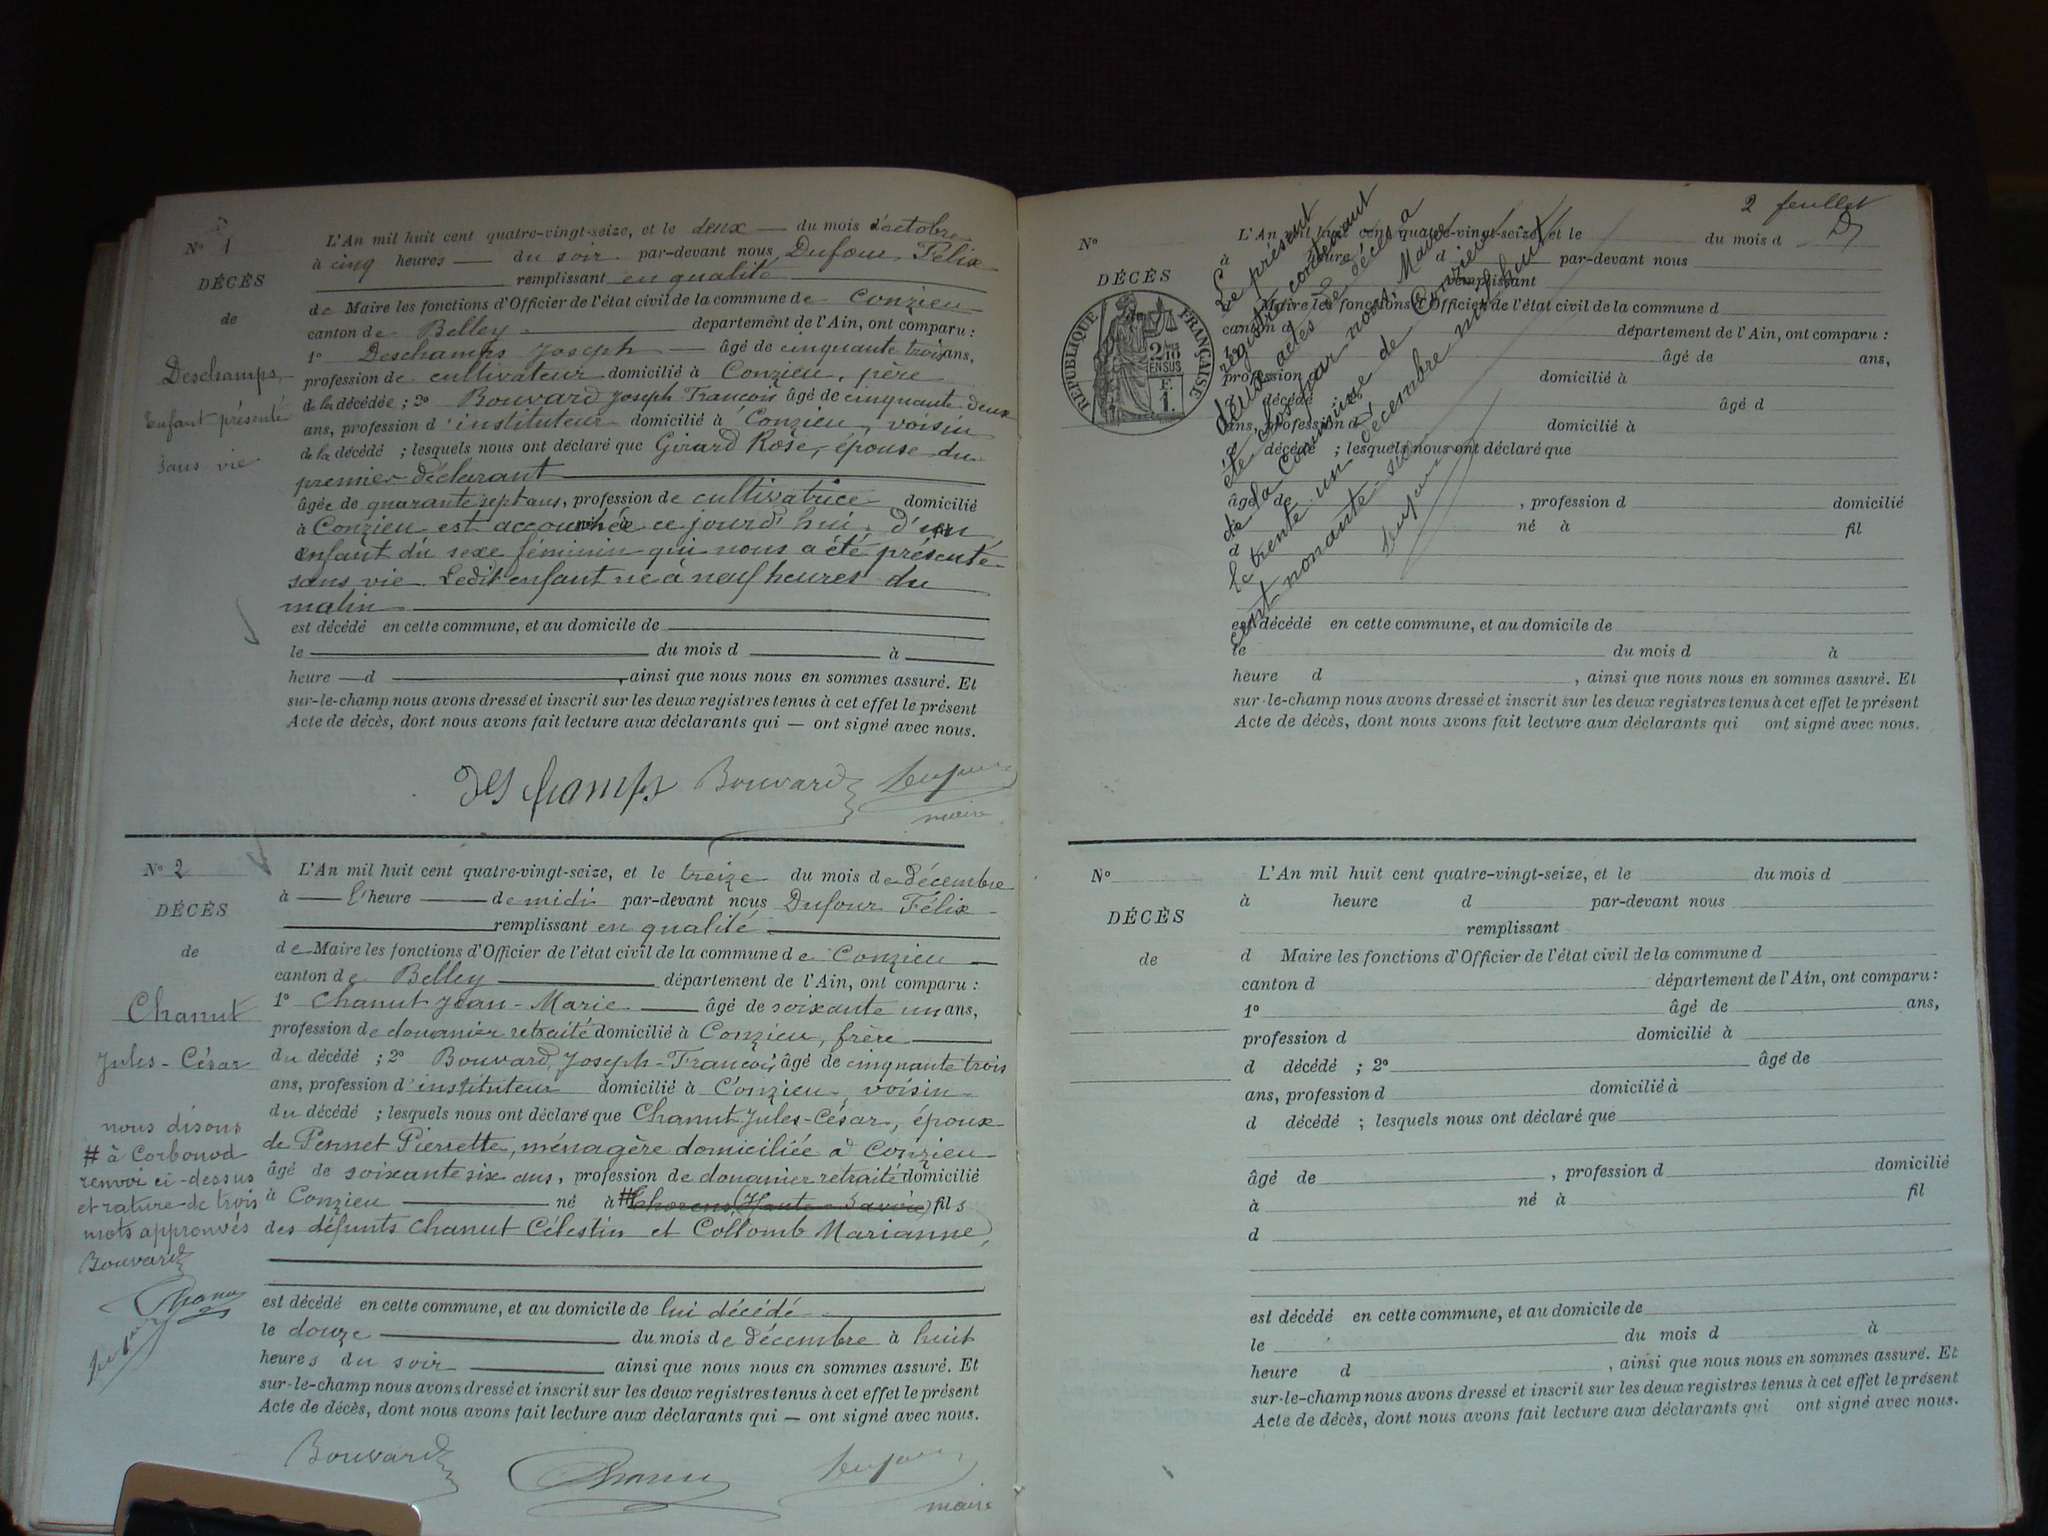 N° 1
DÉCÈS
de
Deschamps
Enfant présenté
sans vie
L'An mil huit cent quatre-vingt-seize, et le deux du mois d'octobre
à cinq heures du soir par-devant nous Dufour Félix
remplissant en qualité
de Maire les fonctions d'Officier de l'état civil de la commune de Conzieu
canton de Belley département de l'Ain, ont comparu :
1° Deschamps Joseph âgé de cinquante trois ans,
profession de cultivateur domicilié à Conzieu, père
de la décédée ; 2° Bouvard Joseph François âgé de cinquante deux
ans, profession d'instituteur domicilié à Conzieu, voisin
de la décédé ; lesquels nous ont déclaré que Girard Rose, épouse du
premier déclarant
âgée de quarante sept ans, profession de cultivatrice domicilié
à Conzieu est accouchée ce jourd'hui, d'un
enfant du sexe féminin qui nous a été présenté
sans vie. Ledit enfant né à neuf heures du
matin
est décédé en cette commune, et au domicile de
le du mois d à
heure d , ainsi que nous nous en sommes assuré. Et
sur-le-champ nous avons dressé et inscrit sur les deux registres tenus à cet effet le présent
Acte de décès, dont nous avons fait lecture aux déclarants qui — ont signé avec nous.
Deschamps Bouvard Dufour
maire
N° 2
DÉCÈS
de
Chanut
Jules-César
nous disons
# à Corbonod
renvoi ci-dessus
et rature de trois
mots approuvés
Bouvard
Chanut
Dufour
L'An mil huit cent quatre-vingt-seize, et le treize du mois de décembre
à l'heure de midi par-devant nous Dufour Félix
remplissant en qualité
de Maire les fonctions d'Officier de l'état civil de la commune de Conzieu
canton de Belley département de l'Ain, ont comparu :
1° Chanut Jean-Marie âgé de soixante un ans,
profession de douanier retraité domicilié à Conzieu, frère
du décédé ; 2° Bouvard, Joseph-François, âgé de cinquante trois
ans, profession d'instituteur domicilié à Conzieu, voisin
du décédé ; lesquels nous ont déclaré que Chanut Jules-César, époux
de Pennet Pierrette, ménagère domiciliée à Conzieu
âgé de soixante six ans, profession de douanier retraité domicilié
à Conzieu né à # (Haute-Savoie) fils
des défunts Chanut Célestin et Collomb Marianne,
est décédé en cette commune, et au domicile de lui décédé
le douze du mois de décembre à huit
heures du soir ainsi que nous nous en sommes assuré. Et
sur-le-champ nous avons dressé et inscrit sur les deux registres tenus à cet effet le présent
Acte de décès, dont nous avons fait lecture aux déclarants qui — ont signé avec nous.
Bouvard Chanut Dufour
maire
2 feuillet
N°
DÉCÈS
RÉPUBLIQUE FRANÇAISE
2/10 EN SUS
F.
1.
L'An mil huit cent quatre-vingt-seize, et le du mois d
à heure d par-devant nous
remplissant
d Maire les fonctions d'Officier de l'état civil de la commune d
canton d département de l'Ain, ont comparu :
1° âgé de ans,
profession d domicilié à
d décédé âgé d
ans, profession d domicilié à
d décédé ; lesquels nous ont déclaré que
âgé de , profession d domicilié
à né à fil
d
est décédé en cette commune, et au domicile de
le du mois d à
heure d , ainsi que nous nous en sommes assuré. Et
sur-le-champ nous avons dressé et inscrit sur les deux registres tenus à cet effet le présent
Acte de décès, dont nous avons fait lecture aux déclarants qui ont signé avec nous.
Le présent
registre contenant
deux actes de décès a
été clos par nous Maire
de la Commune de Conzieu
le trente un décembre mil huit
cent nonante-six
Dufour
N°
DÉCÈS
de
L'An mil huit cent quatre-vingt-seize, et le du mois d
à heure d par-devant nous
remplissant
d Maire les fonctions d'Officier de l'état civil de la commune d
canton d département de l'Ain, ont comparu :
1° âgé de ans,
profession d domicilié à
d décédé ; 2° âgé de
ans, profession d domicilié à
d décédé ; lesquels nous ont déclaré que
âgé de , profession d domicilié
à né à fil
d
est décédé en cette commune, et au domicile de
le du mois d à
heure d , ainsi que nous nous en sommes assuré. Et
sur-le-champ nous avons dressé et inscrit sur les deux registres tenus à cet effet le présent
Acte de décès, dont nous avons fait lecture aux déclarants qui ont signé avec nous.